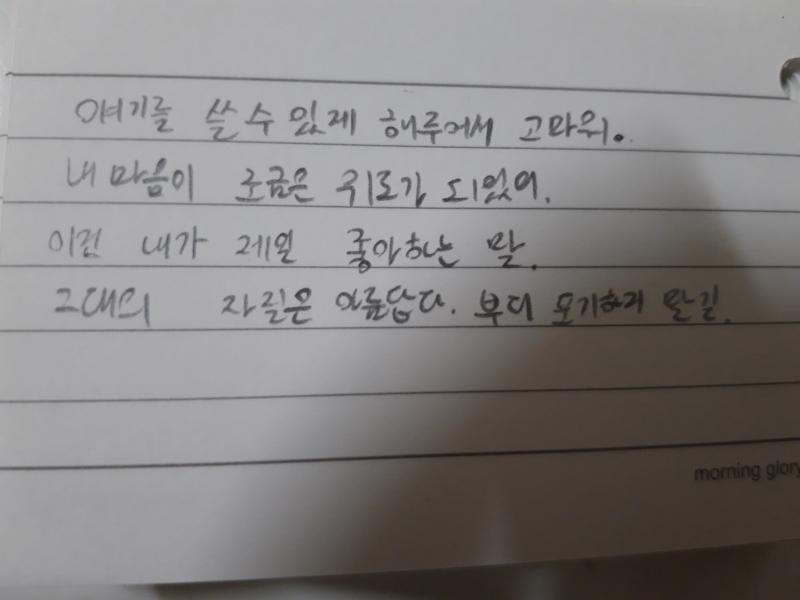 얘기를 쓸 수 있게 해줘서 고마워.
내 마음이 조금은 위로가 되었어.
이건 내가 제일 좋아하는 말.
그대의 자질은 아름답다. 부디 포기하지 말길.
morning glory